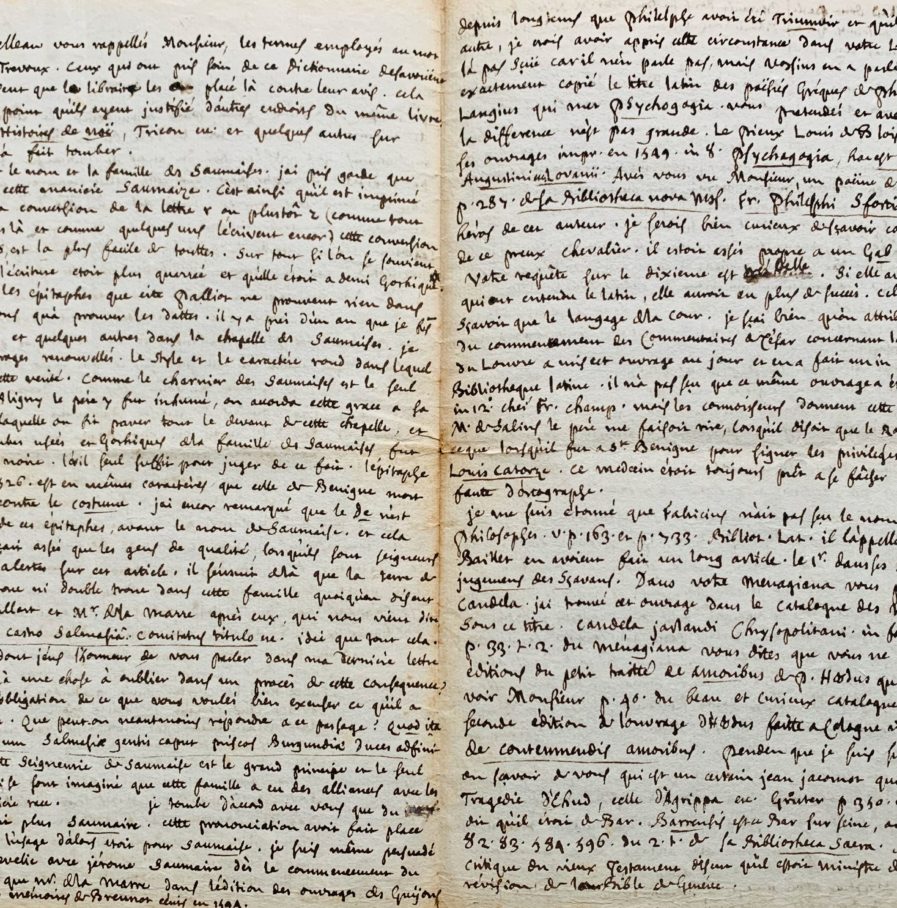 elleau vous rappellés Monsieur, les termes employés au mot
Trevoux. Ceux qui ont pris soin de ce dictionnaire desavouë
dent que le libraire les placé là contre leur avis. cela
point quils ayent justifié d'autres endroits du même livre
histoires de noéi, Tricon &c. et quelques autres sur
à fait tomber.
le nom et la famille des Saumaises. j'ai pris garde que
cette maniere Saumaize. C'est ainsi qu'il est imprimé
a conversion de la lettre r ou plustôt z (comme tout
là et comme quelques uns l'écrivent encor) cette conversion
est la plus facile de touttes. Sur tout si l'on se souvient
l'écriture etoit plus quarrée et qu'elle étoit a demi Gothique
les épitaphes que cite Palliot ne prouvent rien dans
que prouver les dattes. il y a près d'un an que je fis
et quelques autres dans la chapelle des Saumaises. je
renouvellés. le style et le caractère rond dans lequel
cette verité. Comme le charnier des Saumaises est le seul
Aligny le père y fut inhumé, on accorda cette grace a sa
laquelle on fit paver tout le devant de cette chapelle, et
usées et Gothiques de la famille des Saumaises, fut
noire. L'œil seul suffit pour juger de ce fait. l'epitaphe
326. est en mêmes caractères que celle de Benigne mort
contre le costume. j'ai encor remarqué que le De n'est
de ces épitaphes, avant le nom de Saumaise. et cela
assés que les gens de qualité, lorsqu'ils sont seigneurs
alertes sur cet article. il s'ensuit de là que la terre de
ni double trone dans cette famille quoiqu'en disent
allart et Mr. de la Marre après eux, qui nous vient dire
castro Salmasia. Comitatus titulo &c. idée que tout cela.
dont j'eus l'honneur de vous parler dans ma derniere lettre
à une chose à oublier dans un procès de cette consequence,
obligation de ce que vous voulés bien excuser ce qu'il a
Que peut on neantmoins répondre a ce passage? quod ita
Salmasiæ gentis caput priscos Burgundiæ Duces adfini
Seigneurie de Saumaise est le grand principe et le seul
se sont imaginé que cette famille a eu des alliances avec les
race. je tombe d'accord avec vous que du
plus Saumaire. cette prononciation avoit fait place
l'usage d'alors étoit pour Saumaise. je suis même persuadé
avec jerôme Saumaire dès le commencement du
que mr. de la marre dans l'édition des ouvrages des Guijons
mémoires de Breunot écrits en 1594.
depuis longtems que Philelphe avoit été Triumvir et qu'il
autre, je crois avoir appris cette circonstance dans votre
là pas sçüe car il n'en parle pas, mais Vossius en a parlé
exactement copié le titre latin des poësies Gréques de Ph
Langius qui met Psychogogia. vous pretendés et ave
la difference n'est pas grande. Le pieux Louis de Blois
ses ouvrages impr. en 1549. in 8. Psychagogia, hoc est
Augustini Lovanii. Avés vous vu Monsieur, un poëme d
p. 287. de sa Bibliotheca nova mss. Fr. Philelphi Sforti
héros de cet auteur. je serois bien curieux de sçavoir co
de ce preux chevalier. il estoit assés propre a un Gab
Votre requête sur le dixieme est belle. Si elle av
qui ont entendu le latin, elle auroit eu plus de succès. Cel
Sçavoir que le langage de la Cour. je sçai bien qu'on attrib
du commencement des Commentaires de César concernant la
du Louvre a mis cet ouvrage au jour et en a fait un in
Bibliotheque latine. il n'a pas sçu que ce même ouvrage a é
in 12. chez Fr. Champ. mais les connoisseurs donnent cette
M. de Salins le père me faisoit rire, lorsqu'il disoit que le Ro
ce que lorsqu'il fut a St. Benigne pour signer les privileges
Louis Catorze. ce medecin étoit toujours prêt a se facher
faute d'ortographe.
je me suis étonné que Fabricius n'ait pas sçu le nom
Philosophes. v. p. 163. et p. 733. Biblioth. Lat. il l'appelle
Baillet en avoient fait un long article. le 1r. dans ses
jugemens des Sçavans. Dans votre menagiana vous p
Candela. j'ai trouvé cet ouvrage dans le catalogue des
Sous ce titre. Candela jarlandi Chrysopolitani. in f
p. 33. t. 2. du menagiana vous dites que vous ne
éditions du petit traitté de amoribus de P. Hœdus qu
voir Monsieur p. 90. du beau et curieux catalogue
seconde edition de l'ouvrage d'Hœdus faitte a Cologne
de contemnendis amoribus. Pendant que je suis su
on sçavoir de vous qui est un certain jean jacomot que
Tragedie d'Ehud, celle d'Agrippa &c. Gruter p. 350.
dit qu'il etoit de Bar. Barrensis est ce Bar sur seine, au
82. 83. 584. 596. du 2. t. de sa Bibliotheca Sacra.
Critique du vieux Testament disent qu'il étoit ministre d
révision de la Bible de Geneve.